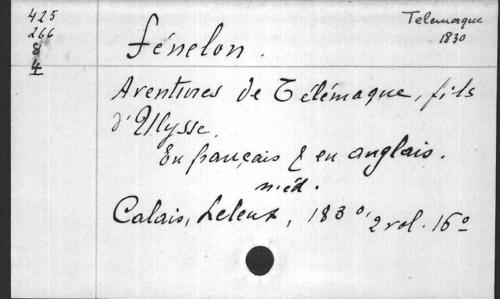 425
266
8
4
Telemaque
1830
Fénelon.
Aventures de Télémaque, fils
d'Ulysse.
En français & en anglais.
n. éd.
Calais, Leleux, 1830, 2 vol. 16º